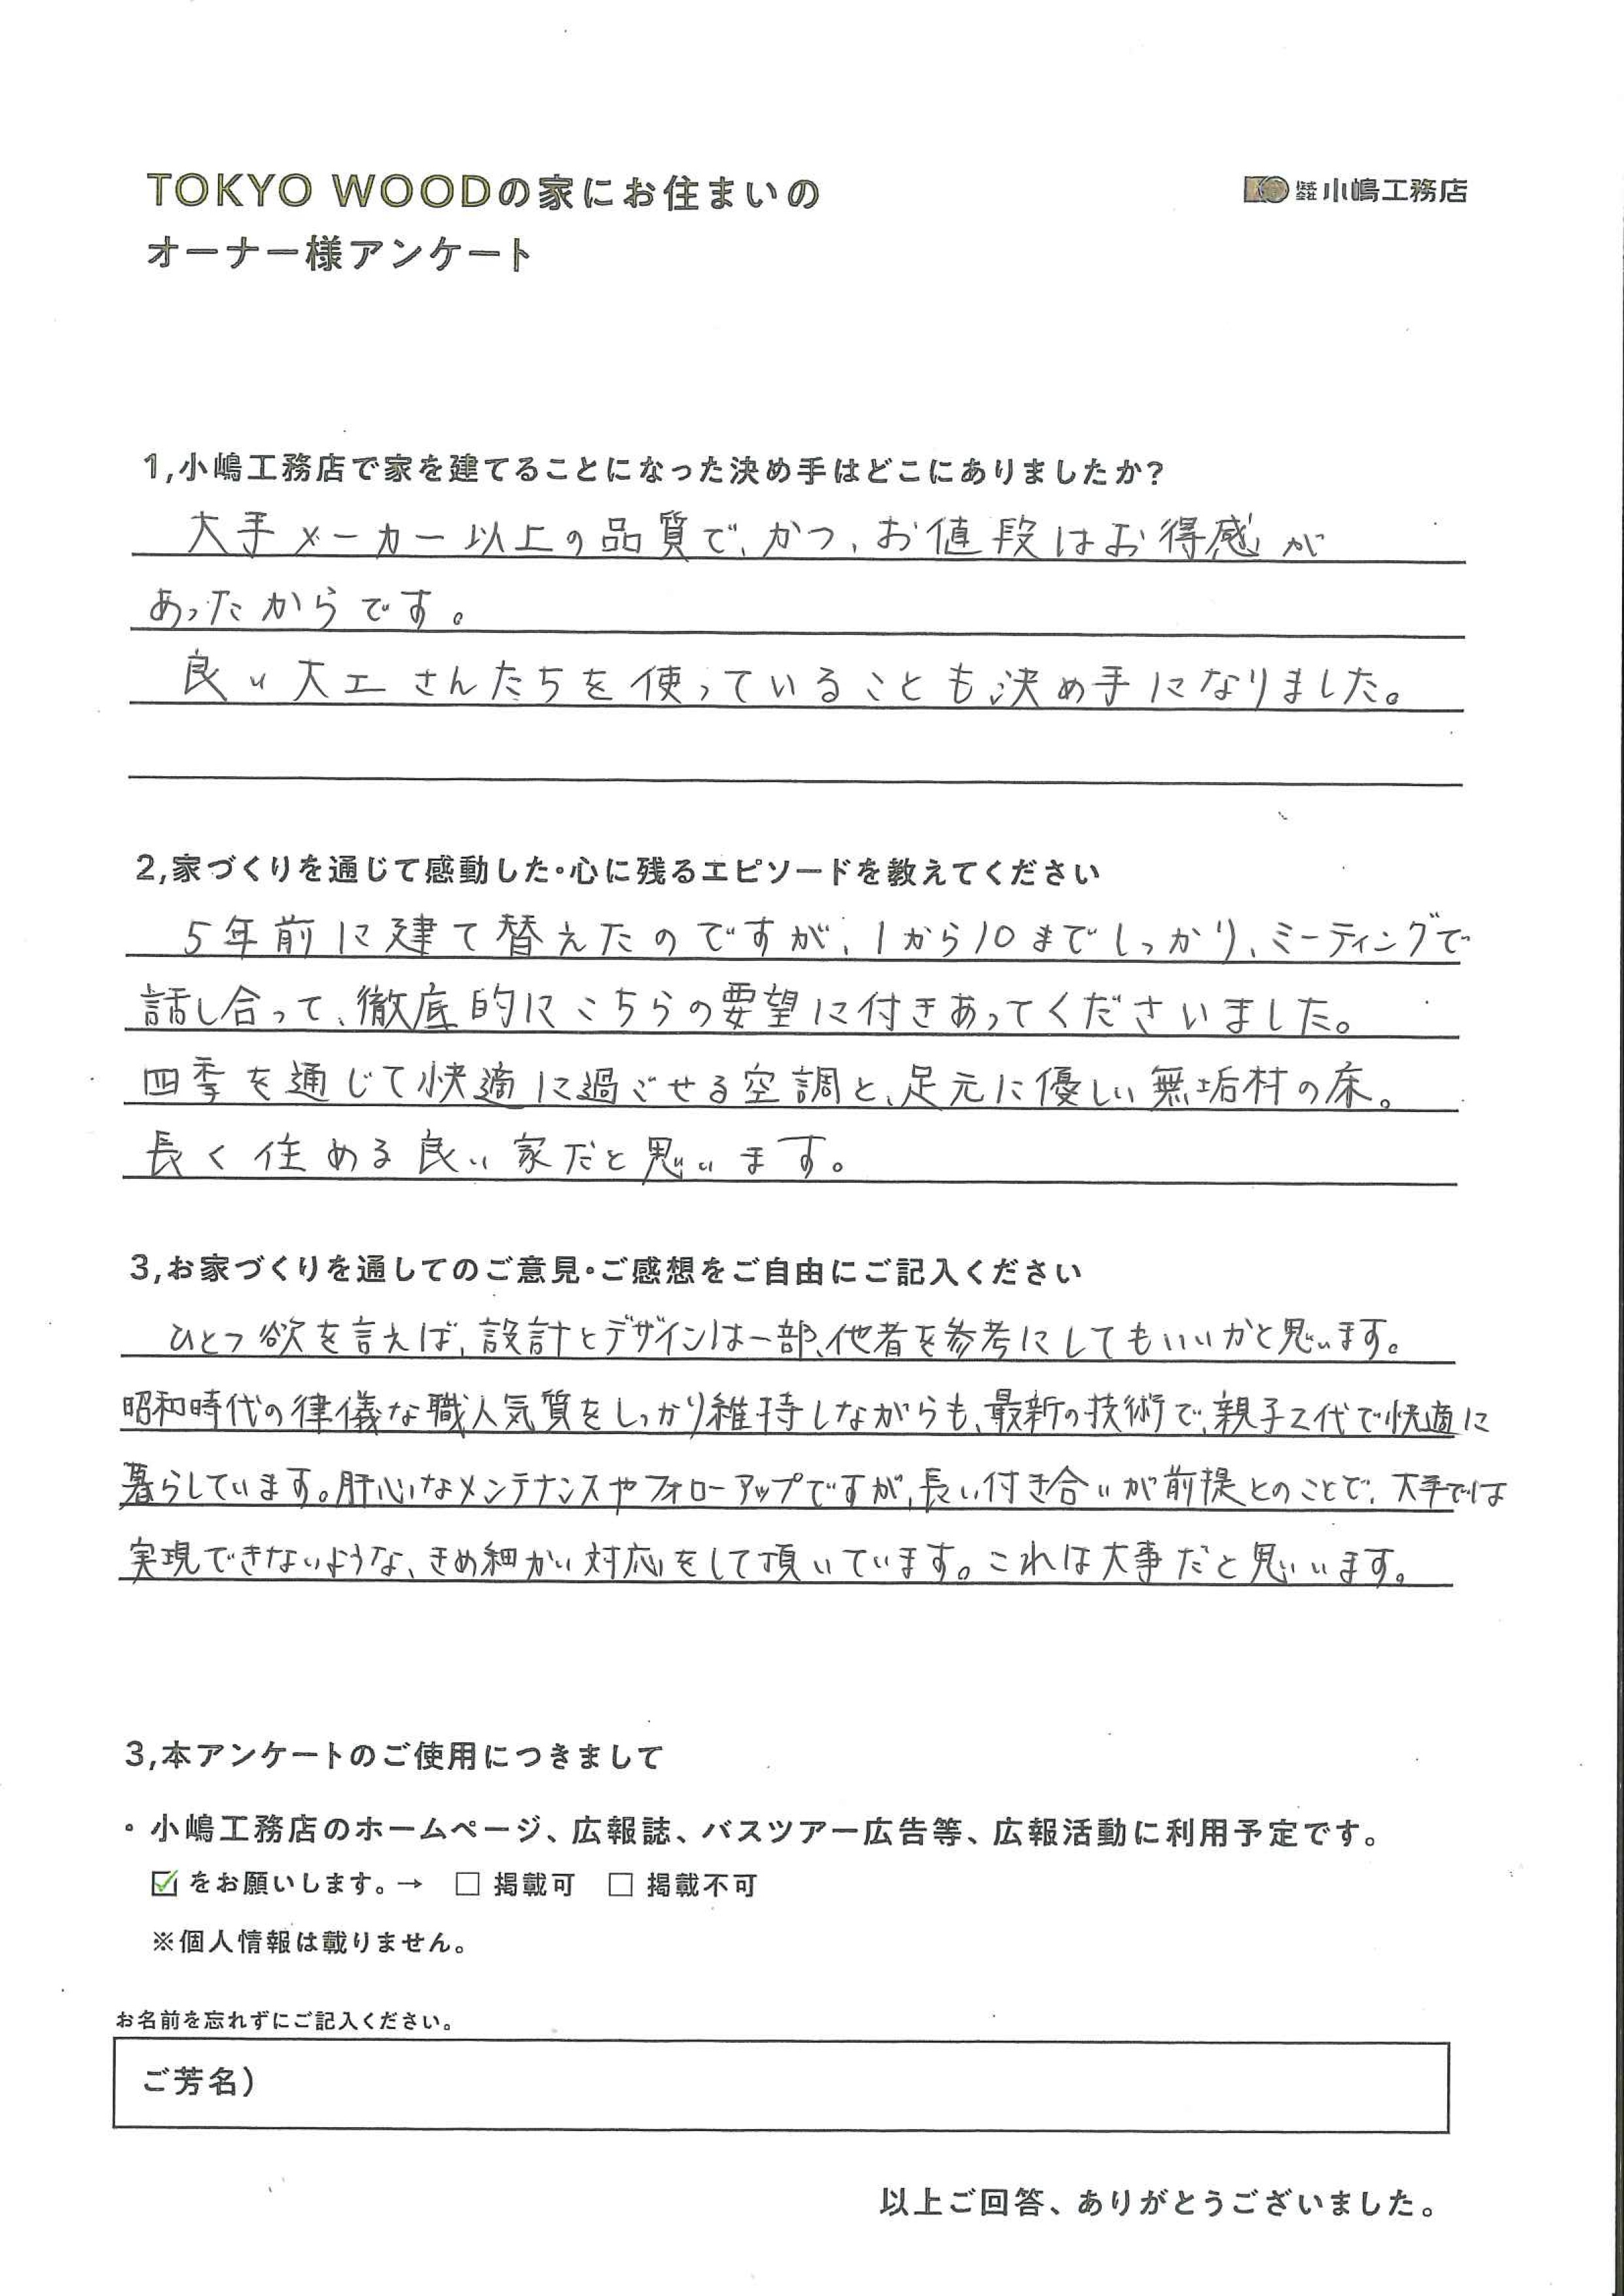 TOKYO WOODの家にお住まいの
オーナー様アンケート
株式会社小嶋工務店
1,小嶋工務店で家を建てることになった決め手はどこにありましたか?
大手メーカー以上の品質で、かつ、お値段はお得感が
あったからです。
良い大工さんたちを使っていることも決め手になりました。
2,家づくりを通じて感動した・心に残るエピソードを教えてください
5年前に建て替えたのですが、1から10までしっかり、ミーティングで
話し合って、徹底的にこちらの要望に付きあってくださいました。
四季を通じて快適に過ごせる空調と、足元に優しい無垢材の床。
長く住める良い家だと思います。
3,お家づくりを通してのご意見・ご感想をご自由にご記入ください
ひとつ欲を言えば、設計とデザインは一部、他者を参考にしてもいいかと思います。
昭和時代の律儀な職人気質をしっかり維持しながらも、最新の技術で、親子2代で快適に
暮らしています。肝心なメンテナンスやフォローアップですが、長い付き合いが前提とのことで、大手では
実現できないような、きめ細かい対応をして頂いています。これは大事だと思います。
3,本アンケートのご使用につきまして
・小嶋工務店のホームページ、広報誌、バスツアー広告等、広報活動に利用予定です。
☑をお願いします。→ □ 掲載可 □ 掲載不可
※個人情報は載りません。
お名前を忘れずにご記入ください。
ご芳名)
以上ご回答、ありがとうございました。